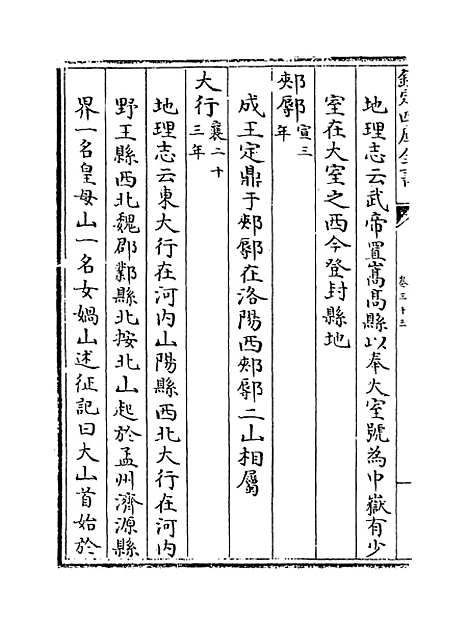 欽定四庫全書
卷三十三
地理志云武帝置嵩高縣以奉大室號為中嶽有少
室在大室之西今登封縣地
郟鄏宣三年
成王定鼎于郟鄏在洛陽西郟鄏二山相屬
大行襄二十三年
地理志云東大行在河内山陽縣西北大行在河内
野王縣西北魏郡鄴縣北按北山起於孟州濟源縣
界一名皇母山一名女媧山述征記曰大山首始於